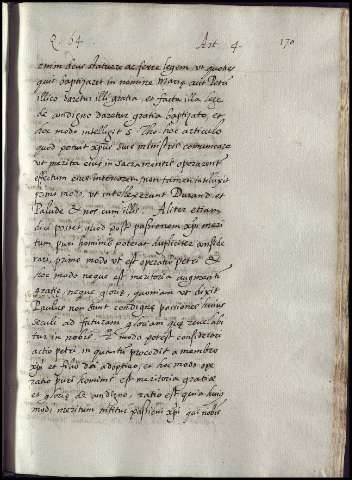 Q. 64. Art 4. 170
enim deus statuere ac ferre legem vt quoties
quis baptizaret in nomine Mariæ aut Petri
illico daretur illi gratia, et facta illa lege
de condigno daretur gratia baptizato, et
hoc modo intelligit S. Tho. hoc articulo
quod potuit xpus suis ministris communicare
vt merita eius in sacramentis operarentur
effectum
primo modo, vt intellexerunt Durand. et
Palude & nos cum illis. Aliter etiam
dici posset quod post passionem xpi meri
tum puri hominis poterat dupliciter conside
rari, primo modo vt est operatio petri &
hoc modo neque est meritoria augmenti
gratiæ, neque gloriæ, quoniam vt dixit
Paulus non sunt condignæ passiones huius
seculi ad futuram gloriam quæ revelabi
tur in nobis. 2º modo potest considerari
actio petri in quantum procedit a membro
xpi et filio dei adoptivo, et hoc modo ope
ratio puri hominis est meritoria gratiæ
et gloriæ de condigno, ratio est quia huius
modi meritum nititur passioni xpi qui nobis